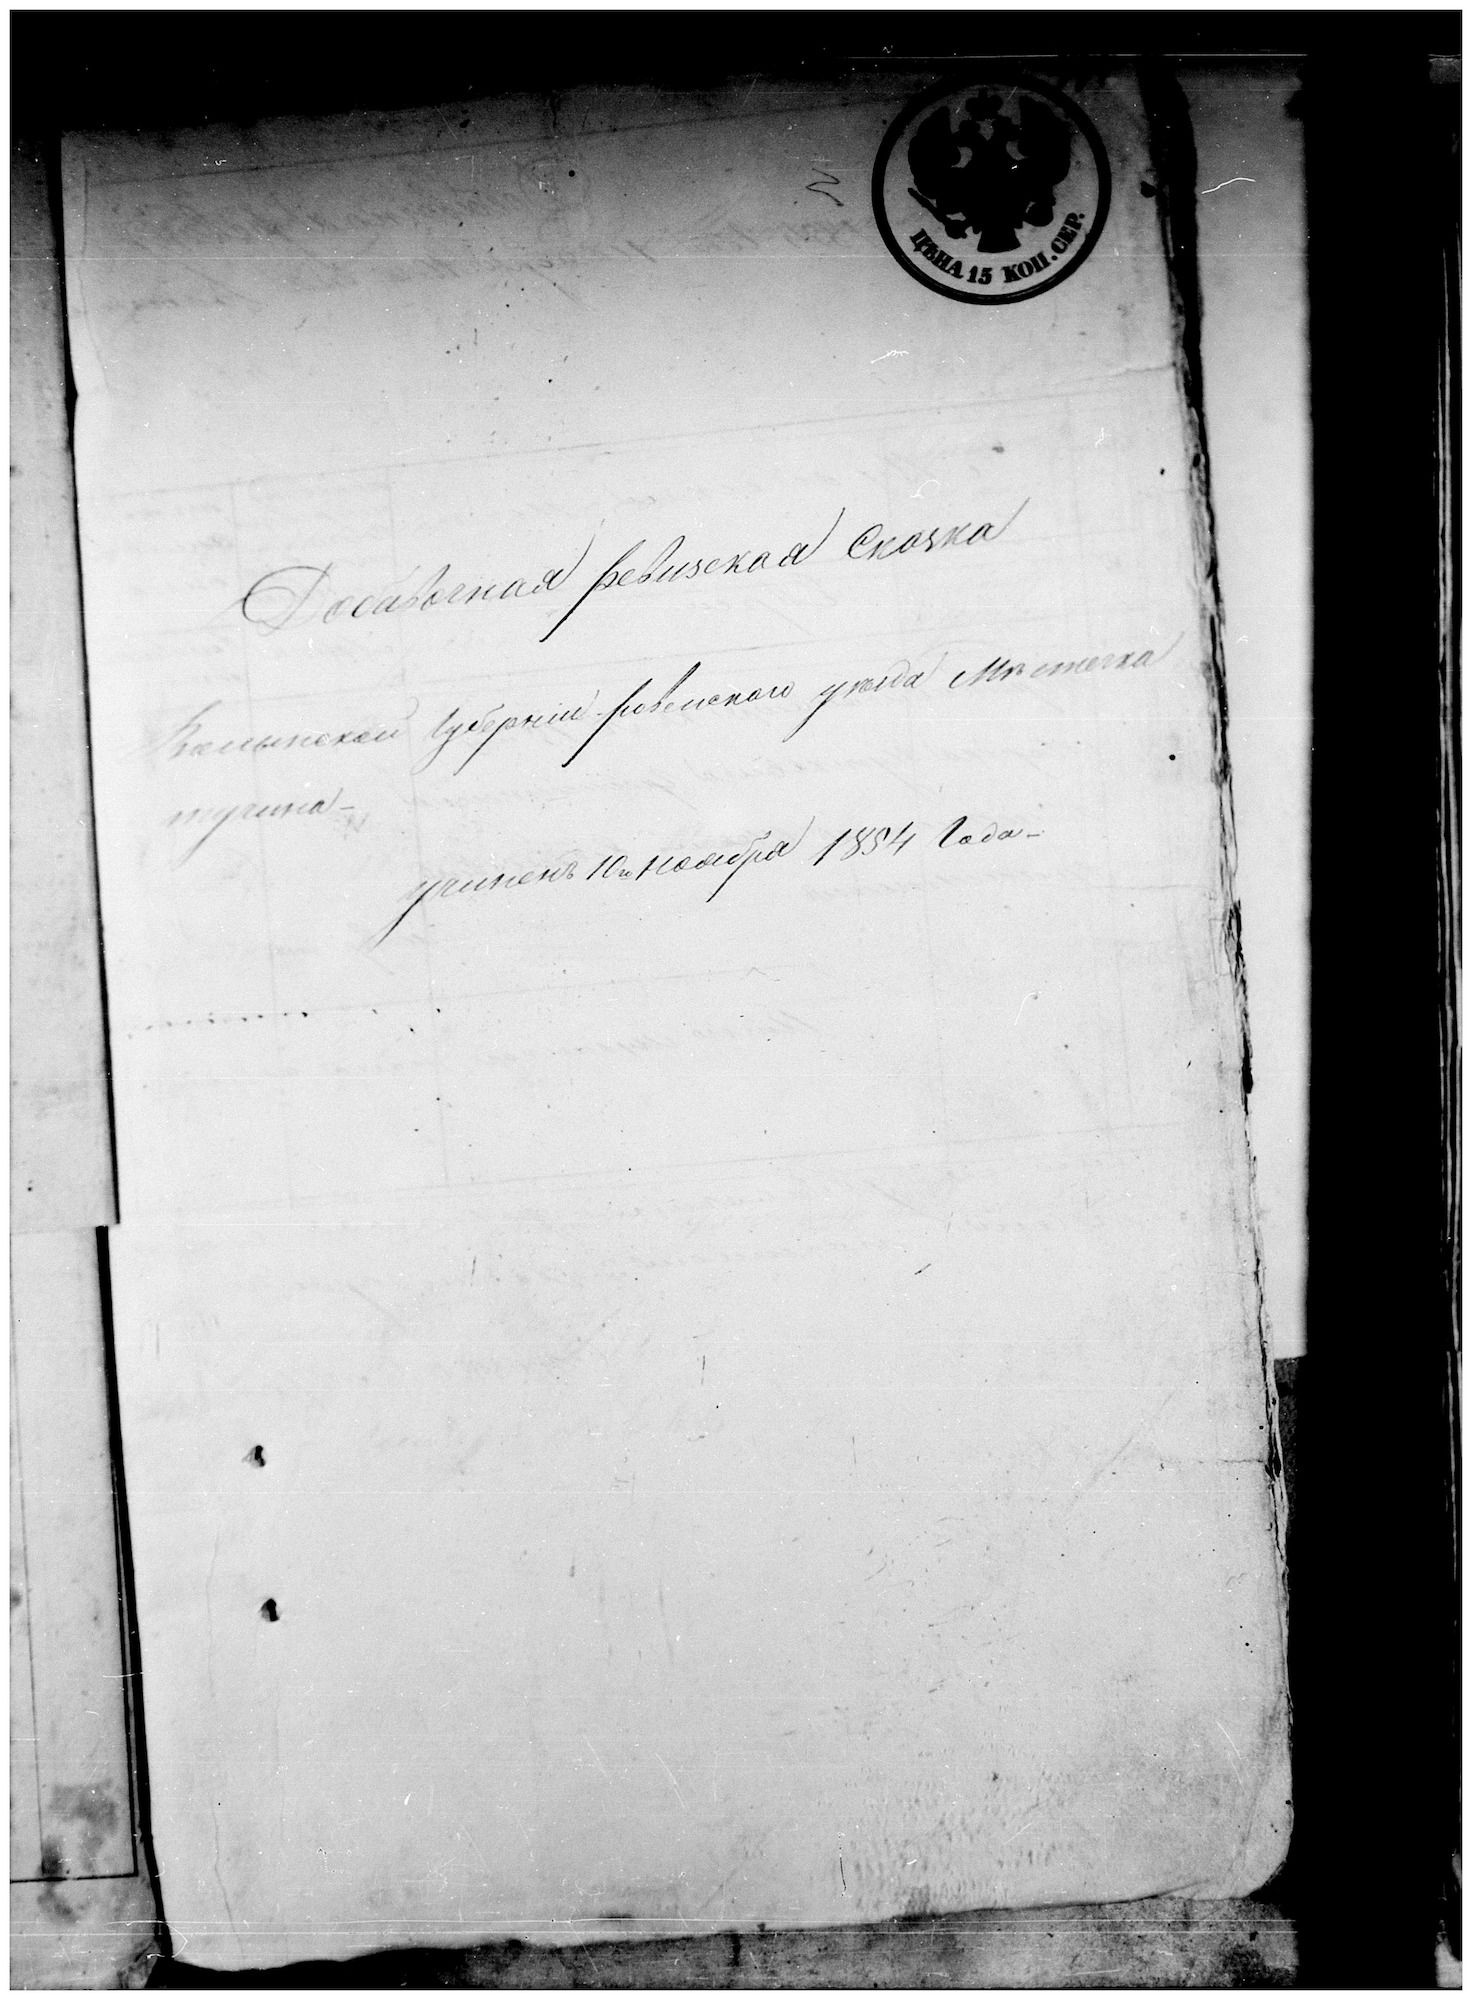 ЦѢНА 15 КОП. СЕР.
Добавочная ревизская Сказка
Волынской Губерніи Ровенского уезда Местечка
тучина –
учинена 10го Ноября 1854 Года –